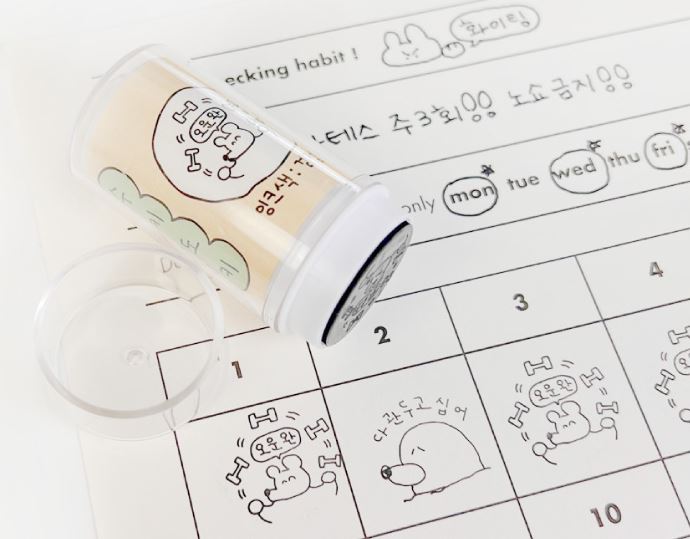 ecking habit !
화이팅
테스 주3회 노쇼금지
only mon tue wed thu fri
오운완
잉크색 :
1 2 3 4
오운완
다 관두고 싶어
오운완
오운
10